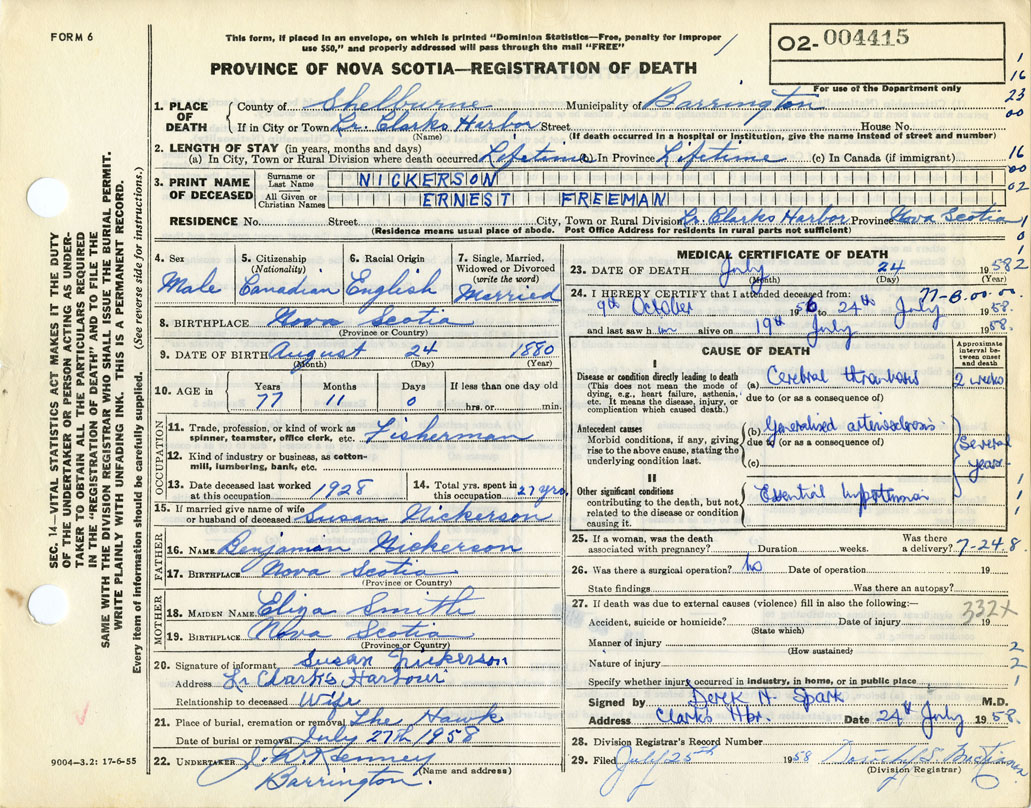 FORM 6
This form, if placed in an envelope, on which is printed "Dominion Statistics—Free, penalty for improper
use $50," and properly addressed will pass through the mail "FREE"
02-004415
For use of the Department only
PROVINCE OF NOVA SCOTIA—REGISTRATION OF DEATH
1
16
23
00
16
00
02
1. PLACE OF DEATH
County of Shelburne Municipality of Barrington
If in City or Town Lr. Clarks Harbor Street House No.
(Name) (If death occurred in a hospital or institution, give the name instead of street and number)
2. LENGTH OF STAY (in years, months and days)
(a) In City, Town or Rural Division where death occurred Lifetime (b) In Province Lifetime (c) In Canada (if immigrant)
3. PRINT NAME OF DECEASED
Surname or Last Name NICKERSON
All Given or Christian Names ERNEST FREEMAN
RESIDENCE No. Street City, Town or Rural Division Lr. Clarks Harbor Province Nova Scotia
(Residence means usual place of abode. Post Office Address for residents in rural parts not sufficient)
SEC. 14—VITAL STATISTICS ACT MAKES IT THE DUTY
OF THE UNDERTAKER OR PERSON ACTING AS UNDER-
TAKER TO OBTAIN ALL THE PARTICULARS REQUIRED
IN THE "REGISTRATION OF DEATH" AND TO FILE THE
SAME WITH THE DIVISION REGISTRAR WHO SHALL ISSUE THE BURIAL PERMIT.
WRITE PLAINLY WITH UNFADING INK. THIS IS A PERMANENT RECORD.
Every item of information should be carefully supplied. (See reverse side for instructions.)
4. Sex
Male
5. Citizenship
(Nationality)
Canadian
6. Racial Origin
English
7. Single, Married,
Widowed or Divorced
(write the word)
Married
8. BIRTHPLACE Nova Scotia
(Province or Country)
9. DATE OF BIRTH August 24 1880
(Month) (Day) (Year)
10. AGE in
Years Months Days If less than one day old
77 11 0 hrs. or min.
OCCUPATION
11. Trade, profession, or kind of work as
spinner, teamster, office clerk, etc. Fisherman
12. Kind of industry or business, as cotton-
mill, lumbering, bank, etc.
13. Date deceased last worked
at this occupation 1928
14. Total yrs. spent in
this occupation 27 yrs.
15. If married give name of wife
or husband of deceased Susan Nickerson
FATHER
16. NAME Benjaman Nickerson
17. BIRTHPLACE Nova Scotia
(Province or Country)
MOTHER
18. MAIDEN NAME Eliza Smith
19. BIRTHPLACE Nova Scotia
(Province or Country)
20. Signature of informant Susan Nickerson
Address Lr Clark's Harbour
Relationship to deceased Wife
21. Place of burial, cremation or removal The Hawk
Date of burial or removal July 27th 1958
22. UNDERTAKER Kenney
Barrington.
(Name and address)
9004-3.2: 17-6-55
MEDICAL CERTIFICATE OF DEATH
23. DATE OF DEATH July 24 1958
(Month) (Day) (Year)
24. I HEREBY CERTIFY that I attended deceased from: 77-B.00.00
9th October 1956 to 24th July 1958
and last saw him alive on 19th July 1958.
CAUSE OF DEATH
Approximate
interval be-
tween onset
and death
I
Disease or condition directly leading to death
(This does not mean the mode of
dying, e.g., heart failure, asthenia,
etc. It means the disease, injury, or
complication which caused death.)
(a) Cerebral thrombosis 2 weeks
due to (or as a consequence of)
Antecedent causes
Morbid conditions, if any, giving
rise to the above cause, stating the
underlying condition last.
(b) Generalised arteriosclerosis
due to (or as a consequence of)
(c)
Several
years
II
Other significant conditions
contributing to the death, but not
related to the disease or condition
causing it.
Essential hypertension
25. If a woman, was the death
associated with pregnancy? Duration weeks. Was there
a delivery? 7-24-8
26. Was there a surgical operation? no Date of operation 19
State findings Was there an autopsy?
27. If death was due to external causes (violence) fill in also the following:—
332X
Accident, suicide or homicide? Date of injury 19
(State which)
Manner of injury
(How sustained)
Nature of injury
Specify whether injury occurred in industry, in home, or in public place
Signed by Derek H. Spark M.D.
Address Clarks Hbr. Date 24th July 1958.
28. Division Registrar's Record Number
29. Filed July 25th 1958
(Division Registrar)